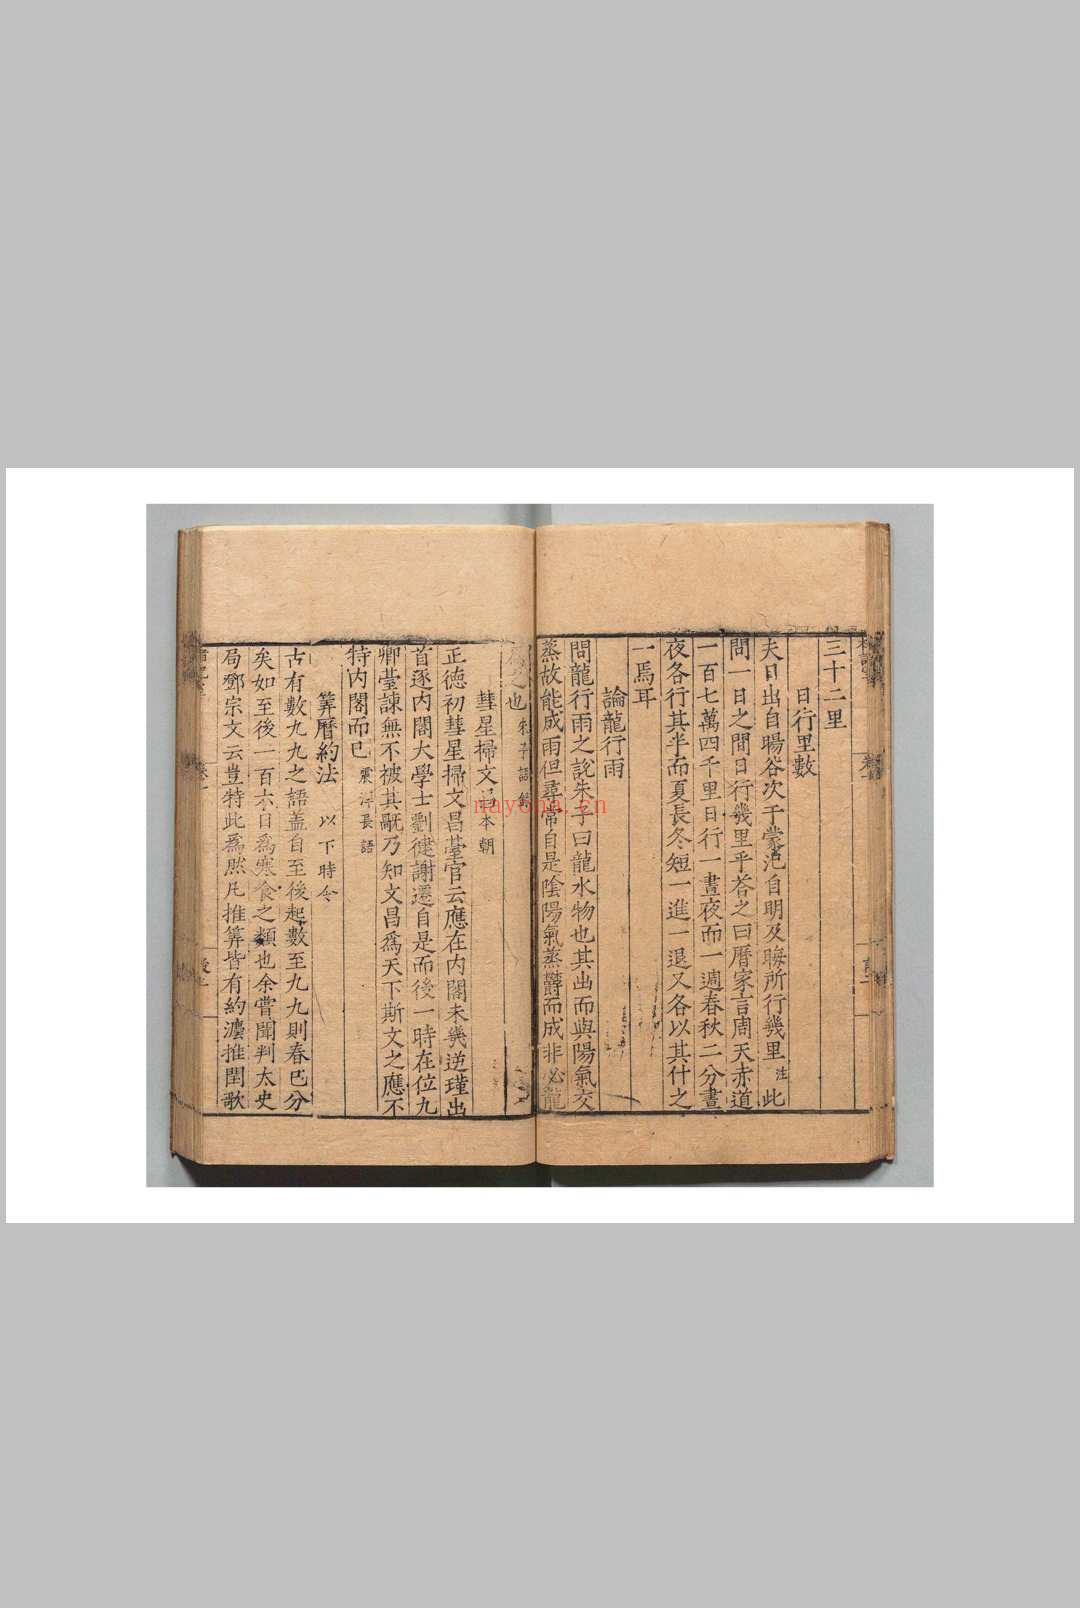 三十二里
日行里數
夫日出自暘谷次于蒙汜自明及晦所行幾里注此
問一日之間日行幾里乎荅之曰曆家言周天赤道
一百七萬四千里日行一晝夜而一週春秋二分晝
夜各行其半而夏長冬短一進一退又各以其什之
一焉耳
論龍行雨
問龍行雨之說朱子曰龍水物也其出而與陽氣交
蒸故能成雨但尋常自是陰陽氣蒸欝而成非必龍
之也朱子語錄
彗星掃文昌本朝
正德初彗星掃文昌臺官云應在內閣未幾逆瑾出
首逐內閣大學士劉健謝遷自是而後一時在位九
卿臺諫無不被其戮乃知文昌為天下斯文之應不
特内閣而已震澤長語
筭曆約法 以下時令
古有數九九之語蓋自至後起數至九九則春巳分
矣如至後一百六日為寒食之類也余嘗聞判太史
局鄧宗文云豈特此為然凡推筭皆有約灋推閏歌
nayona.cn